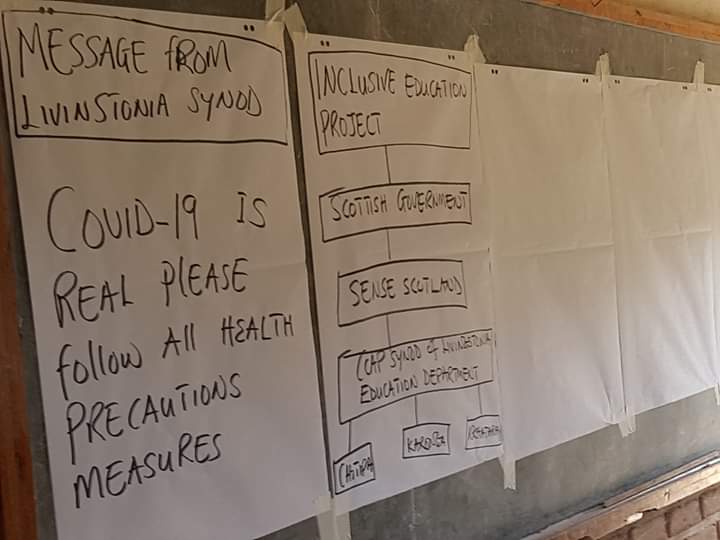 MESSAGE FROM
LIVINSTONIA SYNOD
COVID-19 IS
REAL PLEASE
FOLLOW ALL HEALTH
PRECAUTIONS
MEASURES
INCLUSIVE EDUCATION
PROJECT
SCOTTISH GOVERNMENT
SENSE SCOTLAND
CCAP SYNOD of LIVINGSTONIA
EDUCATION DEPARTMENT
CHITIPA
KARONGA